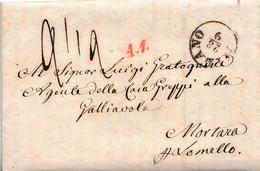 A.T.
Al Signor Luigi Gratognini
Agente della Casa Greppi alla
Galliavola
Mortara
Lomello.